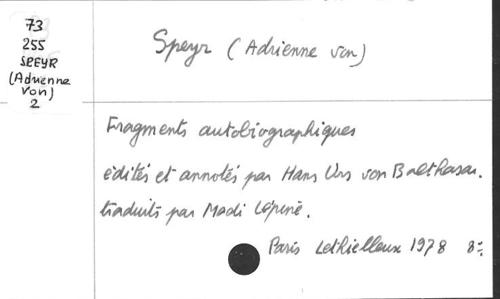 73
255
SPEYR
(Adrienne
Von)
2
Speyr (Adrienne von)
Fragments autobiographiques
édités et annotés par Hans Urs von Balthasar.
traduits par Madi Lépine.
Paris Lethielleux 1978 8°.